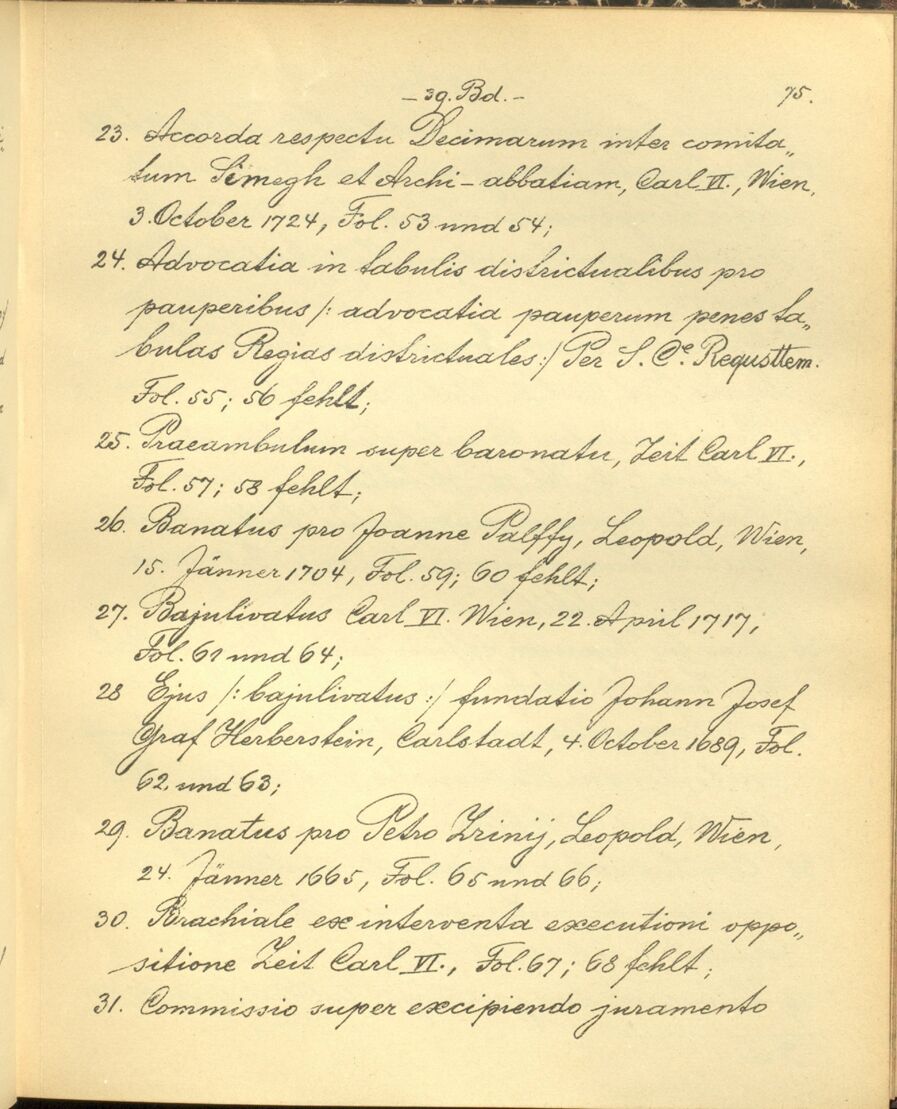 – 39. Bd. – 75.
23. Accorda respectu Decimarum inter comita„
tum Simegh et Archi-abbatiam, Carl VI., Wien,
3. October 1724, Fol. 53 und 54;
24. Advocatia in tabulis districtualibus pro
pauperibus /: advocatia pauperum penes ta„
bulas Regias districtuales :/ Per S. C. e. Requsttem.
Fol. 55; 56 fehlt;
25. Praeambulum super baronatu, Zeit Carl VI.,
Fol. 57; 58 fehlt;
26. Banatus pro Joanne Palffy, Leopold, Wien,
15. Jänner 1704, Fol. 59; 60 fehlt;
27. Bajulivatus Carl VI. Wien, 22. April 1717,
Fol. 61 und 64;
28 Ejus /: bajulivatus :/ fundatio Johann Josef
Graf Herberstein, Carlstadt, 4. October 1689, Fol.
62 und 63;
29. Banatus pro Petro Zrinij, Leopold, Wien,
24. Jänner 1665, Fol. 65 und 66;
30. Brachiale ex interventa executioni oppo„
sitione Zeit Carl VI., Fol. 67; 68 fehlt;
31. Commissio super excipiendo juramento